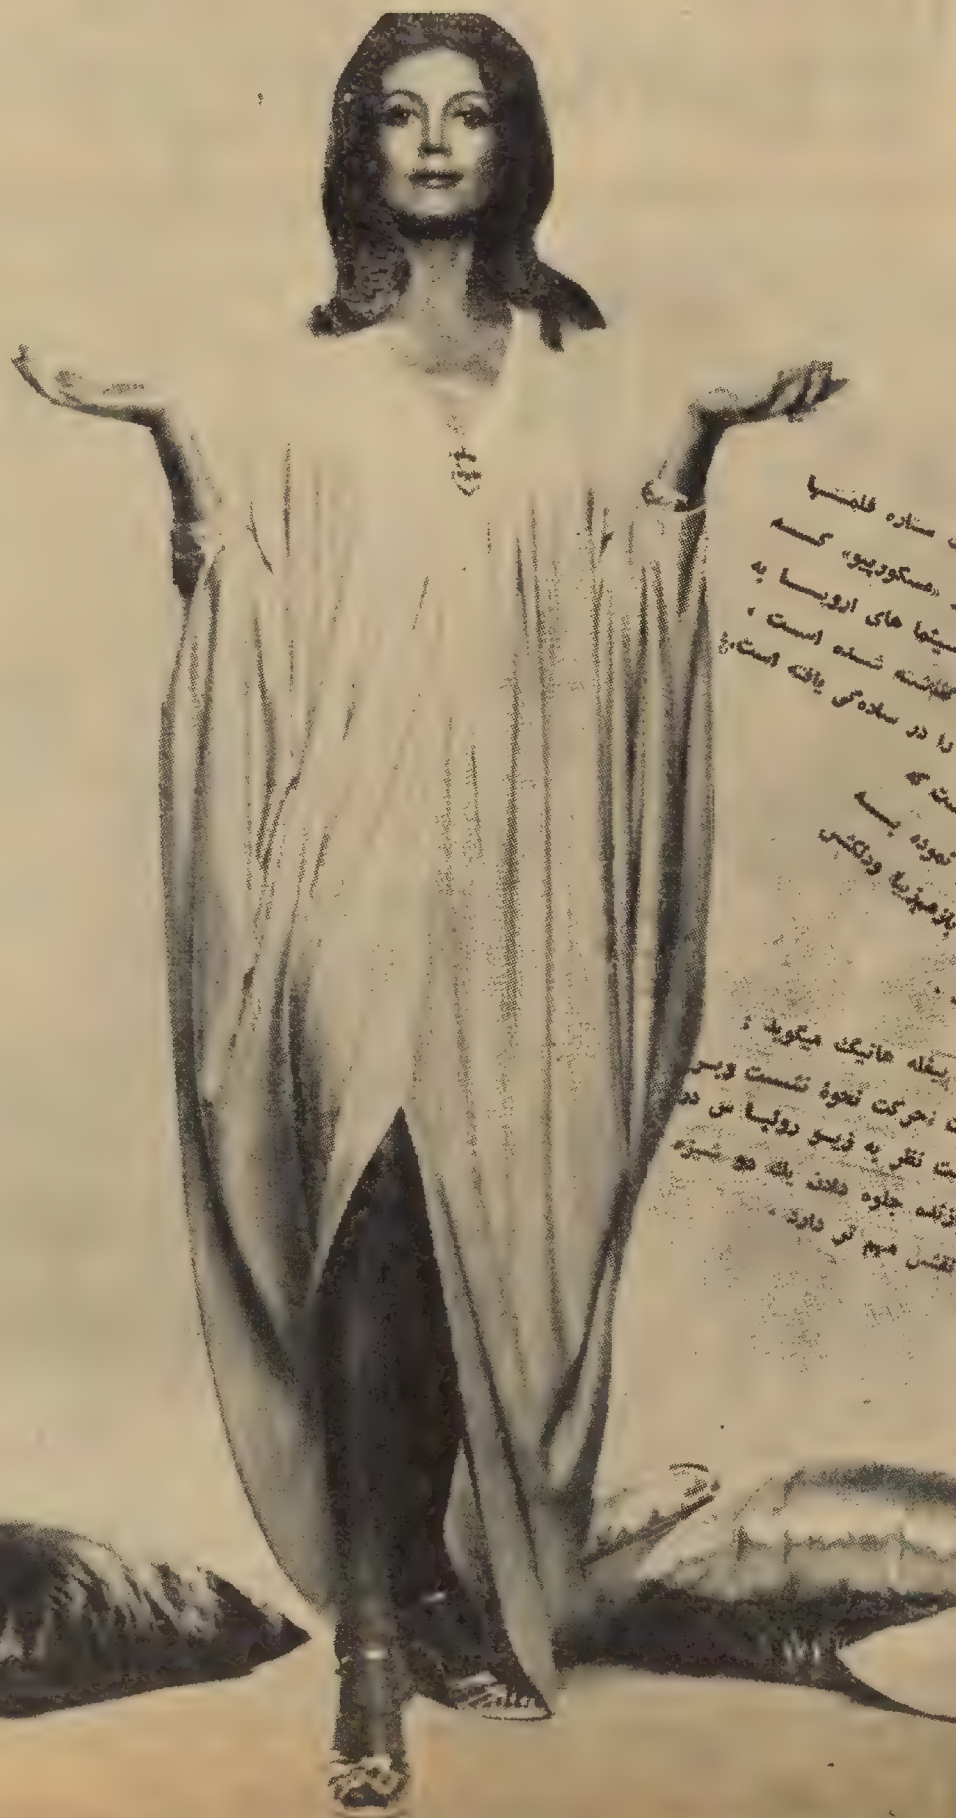 ستاره فلمها
«سکورپیو» که
سینما های اروپا به
گذاشته شده است ،
را در ساده گی یافته است.
ست که
نموده به
ودلکش
هانیک میگوید :
حرکت نحوهٔ نشست وبر
ست نظر به زیو رولبا س در
زنده جلوه دادن یک دو شیزه
نقش مهم تر دارد .